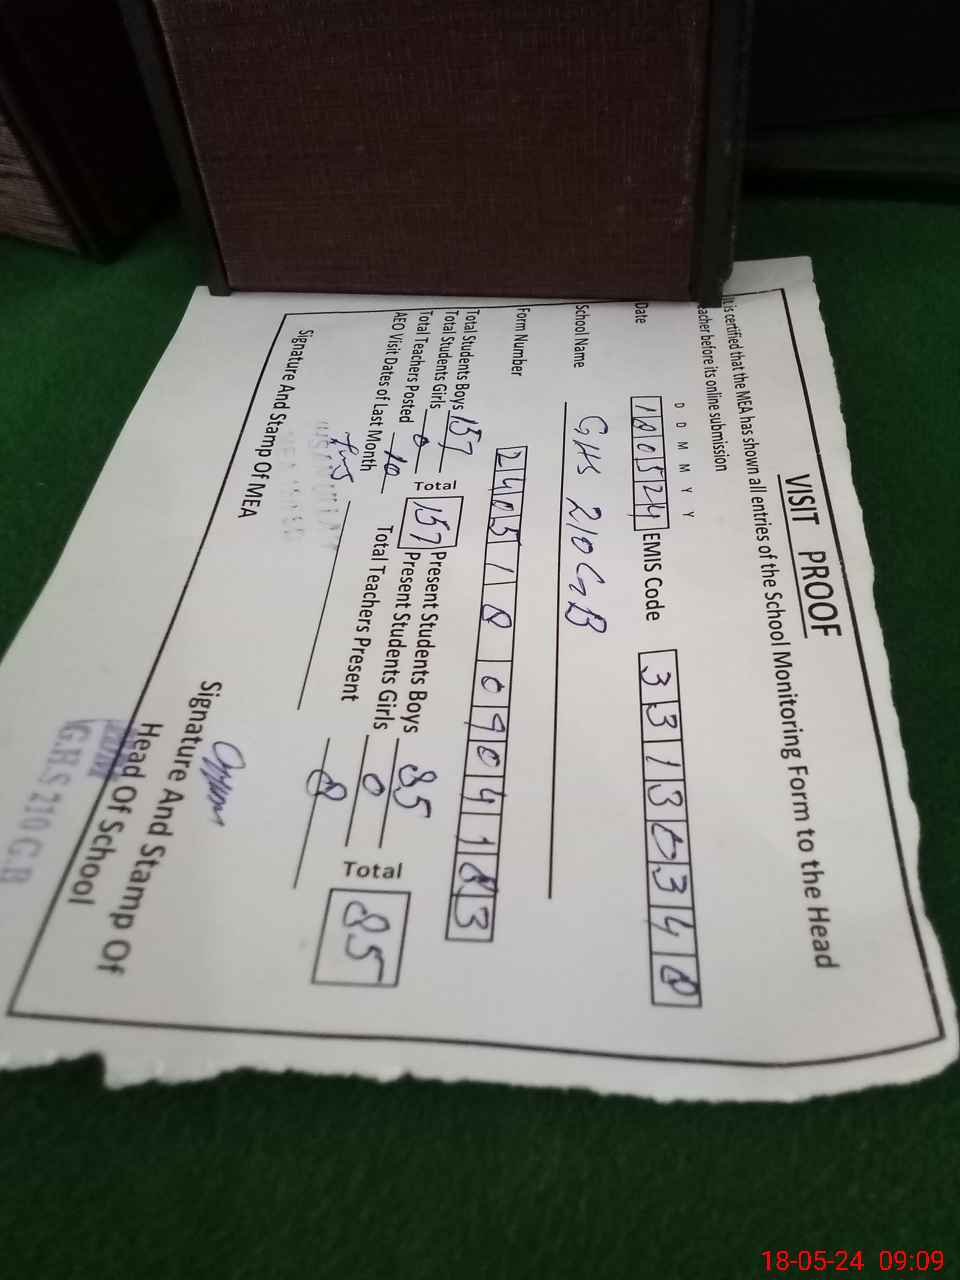 VISIT PROOF
It is certified that the MEA has shown all entries of the School Monitoring Form to the Head
eacher before its online submission
D D M M Y Y
Date 180524 EMIS Code 33130348
School Name GHS 210 GB
Form Number 2405180904183
Total Students Boys 157 Total 157 Present Students Boys 85 Total 85
Total Students Girls 0 Present Students Girls 0
Total Teachers Posted 10 Total Teachers Present 8
AEO Visit Dates of Last Month
Signature And Stamp Of MEA
Signature And Stamp Of
Head Of School
G.H.S 210 G.B
18-05-24 09:09